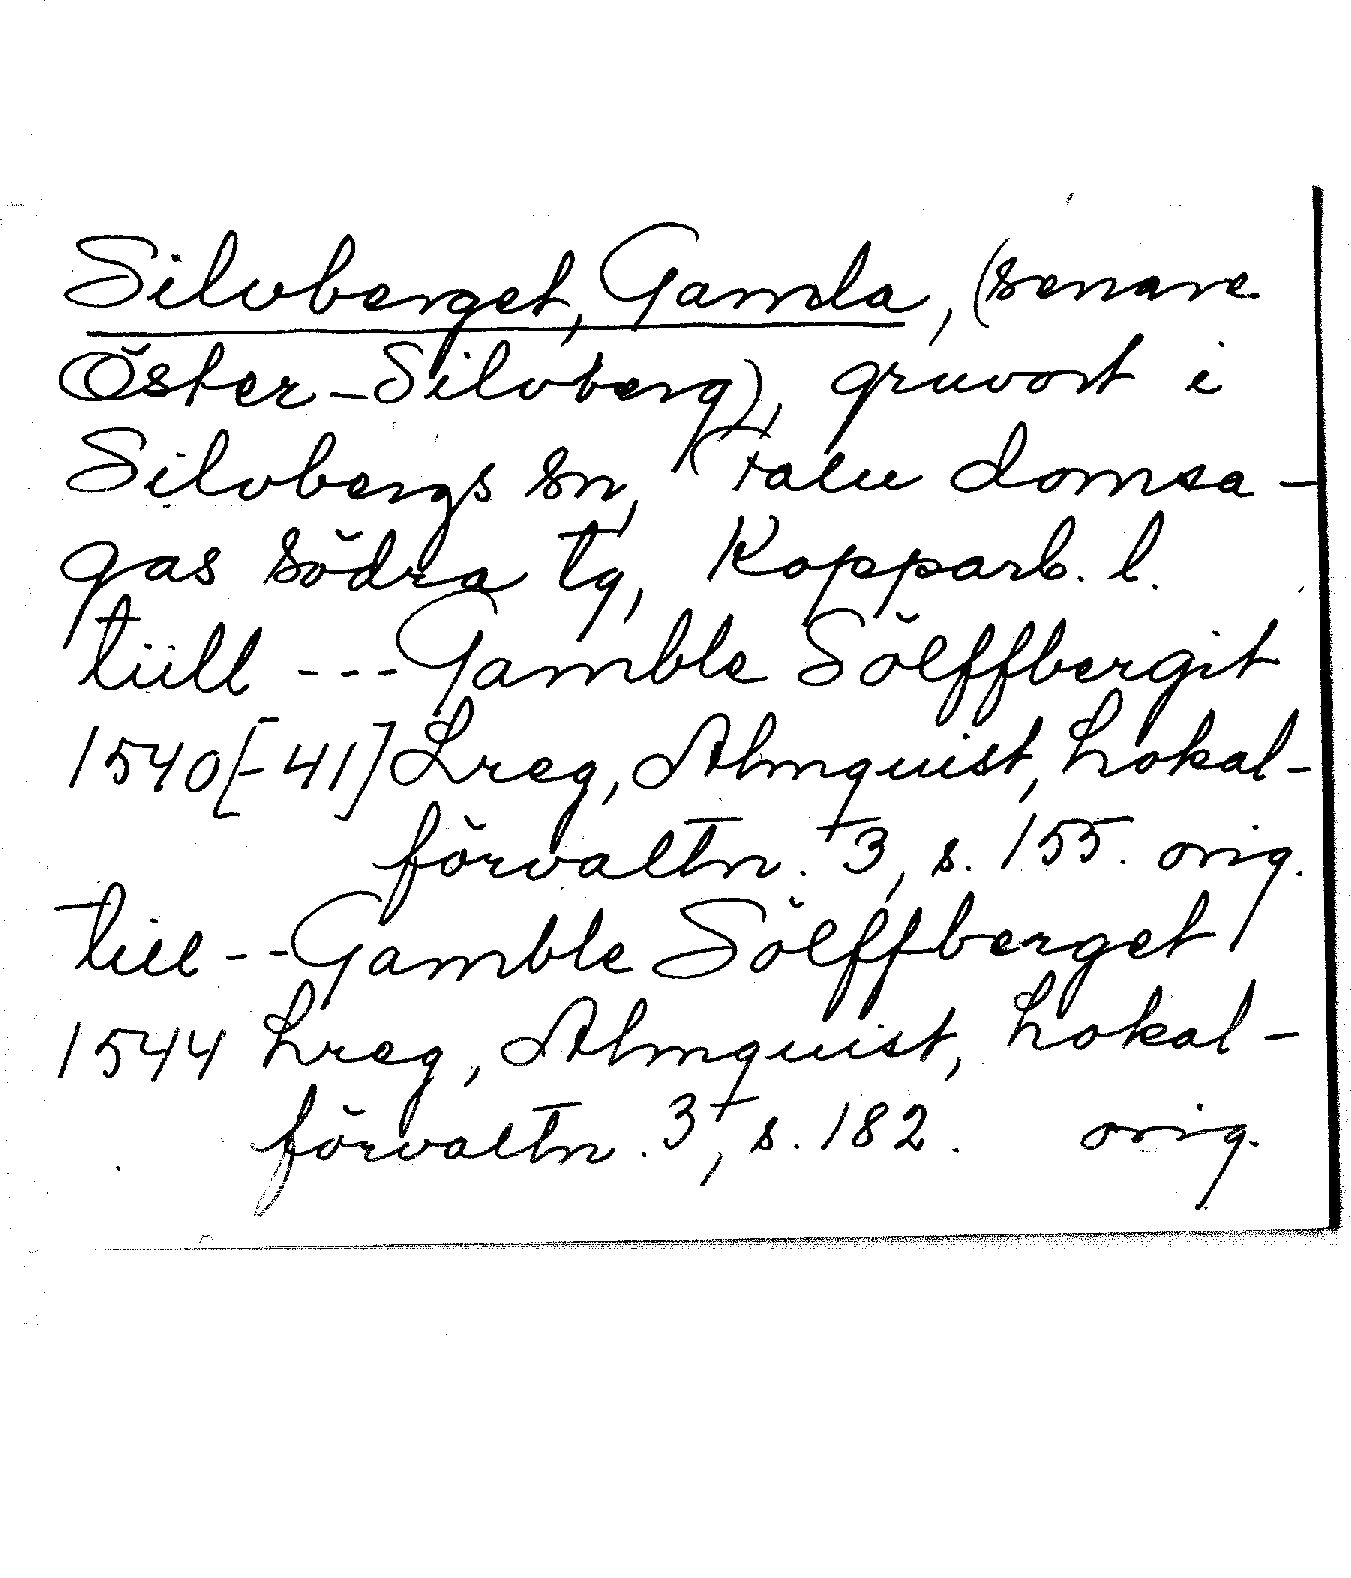 Silvberget, Gamla, (senare
Öster-Silvberg), gruvort i
Silvbergs sn, Falu domsa-
gas södra tg, Kopparb. l.
tiill --- Gamble Sölffbergit
1540[-41] Lreg, Almquist, Lokal-
förvaltn. 3, s. 155. orig.
till -- Gamble Sölffberget
1544 Lreg, Almquist, Lokal-
förvaltn. 3, s. 182. orig.